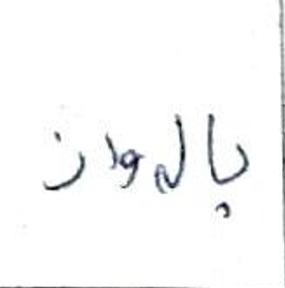 بالوان